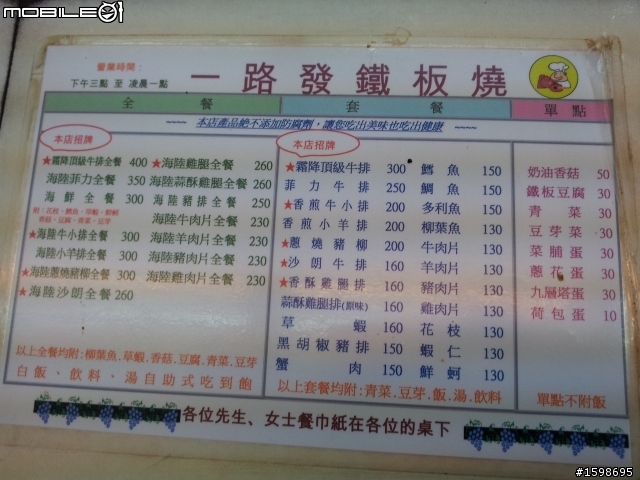 MOBILE01
營業時間：
下午三點 至 凌晨一點
一路發鐵板燒
全餐
套餐
單點
~~~~ 本店產品絕不添加防腐劑，讓您吃出美味也吃出健康 ~~~~
本店招牌
★霜降頂級牛排全餐 400
海陸菲力全餐 350
海鮮全餐 300
附：花枝、鱈魚、草蝦、鮮蚵
香菇、豆腐、青菜、豆芽
★海陸牛小排全餐 300
海陸小羊排全餐 300
★海陸蔥燒豬柳全餐 300
★海陸沙朗全餐 260
★海陸雞腿全餐 260
海陸蒜酥雞腿全餐 260
海陸豬排全餐 250
海陸牛肉片全餐 230
海陸羊肉片全餐 230
海陸豬肉片全餐 230
海陸雞肉片全餐 230
以上全餐均附：柳葉魚.草蝦.香菇.豆腐.青菜.豆芽
白飯、飲料、湯自助式吃到飽
本店招牌
★霜降頂級牛排 300
菲力牛排 250
★香煎牛小排 200
香煎小羊排 200
★蔥燒豬柳 200
★沙朗牛排 160
★香酥雞腿排 160
蒜酥雞腿排(原味) 160
草蝦 160
黑胡椒豬排 150
蟹肉 150
鱈魚 150
鯛魚 150
多利魚 150
柳葉魚 130
牛肉片 130
羊肉片 130
豬肉片 130
雞肉片 130
花枝 130
蝦仁 130
鮮蚵 130
以上套餐均附：青菜.豆芽.飯.湯.飲料
奶油香菇 50
鐵板豆腐 30
青菜 30
豆芽菜 30
菜脯蛋 30
蔥花蛋 30
九層塔蛋 30
荷包蛋 10
單點不附飯
各位先生、女士餐巾紙在各位的桌下
#1598695